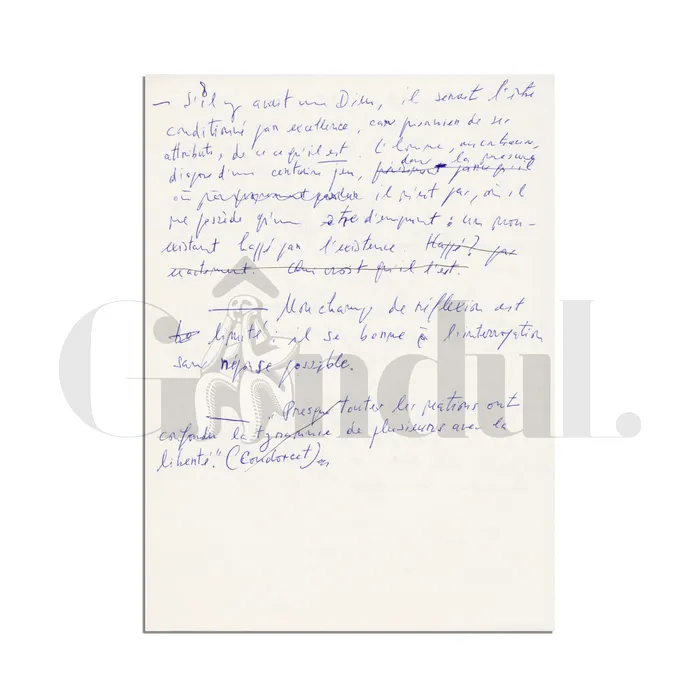 — S'il y avait un Dieu, il serait l'être
conditionné par excellence, car prisonnier de ses
attributs, de ce qu'il est. L'homme, au contraire,
dispose d'un certain jeu, dans la mesure
où il n'est pas, où il
ne possède qu'un être d'emprunt : un non-
existant happé par l'existence. Happé? pas
exactement. On croit qu'il l'est.
— Mon champ de réflexion est
limité : il se borne à l'interrogation
sans réponse possible.
— "Presque toutes les nations ont
confondu la tyrannie de plusieurs avec la
liberté." (Condorcet)
Gondul.